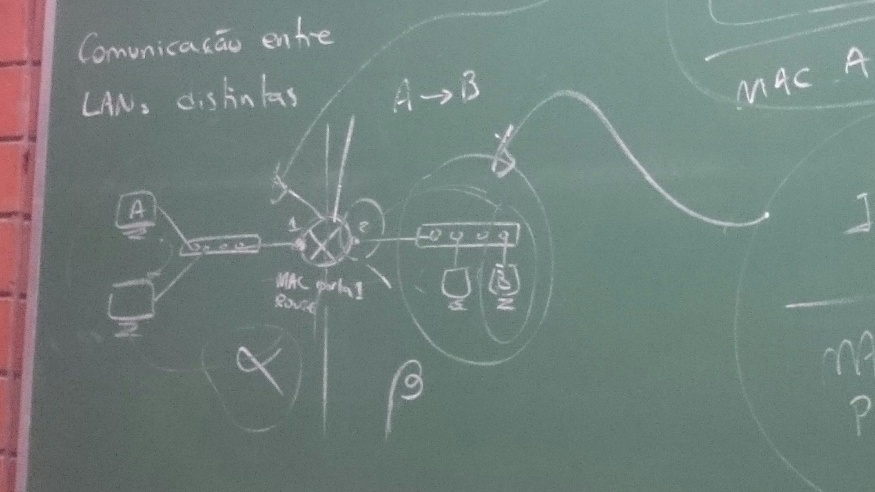 Comunicação entre
LANs distintas
A → B
MAC A
A
1
2
MAC porta 1
B
α
β
P